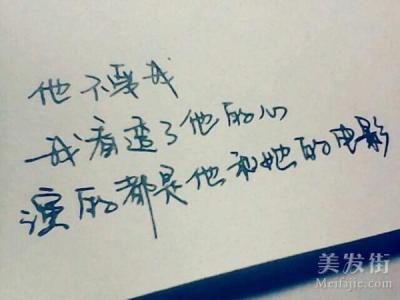 他不要我
我看遍了他的心
演的都是他和她的电影
美发街
Meifajie.com